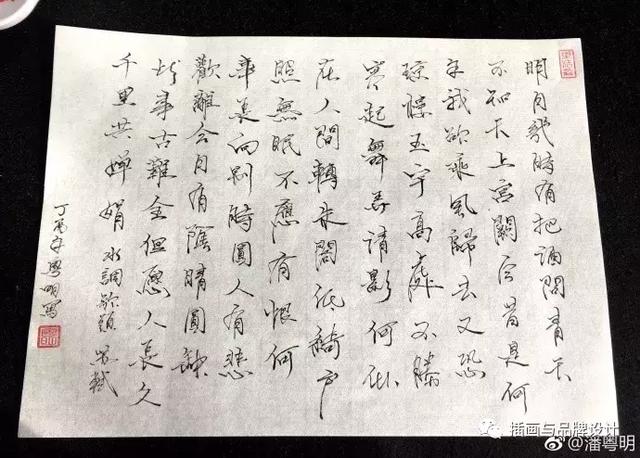 明月幾時有把酒問青天
不知天上宮闕今昔是何
年我欲乘風歸去又恐
瓊樓玉宇高處不勝
寒起舞弄清影何似
在人間轉朱閣低綺戶
照無眠不應有恨何
事長向別時圓人有悲
歡離合月有陰晴圓缺
此事古難全但願人長久
千里共嬋娟 水調歌頭 蘇軾
丁酉年粵明寫
插画与品牌设计
@潘粤明